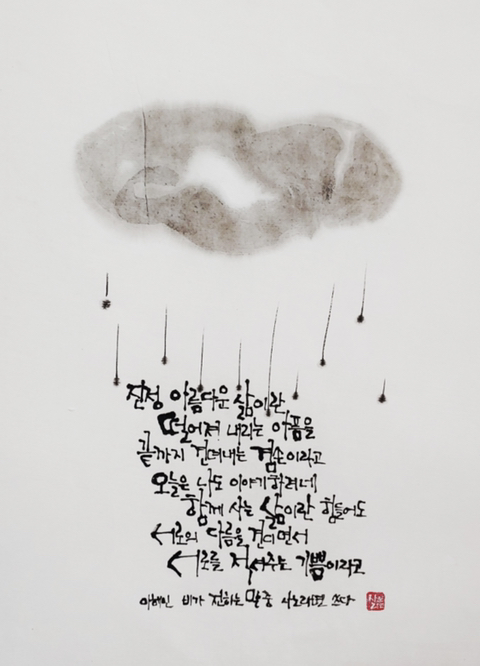 진정 아름다운 삶이란
떨어져 내리는 아픔을
끝까지 견뎌내는 겸손이라고
오늘은 나도 이야기하려네
함께 사는 삶이란 힘들어도
서로의 다름을 견디면서
서로를 적셔주는 기쁨이라고
이해인 비가 전하는 말 중 쓰다